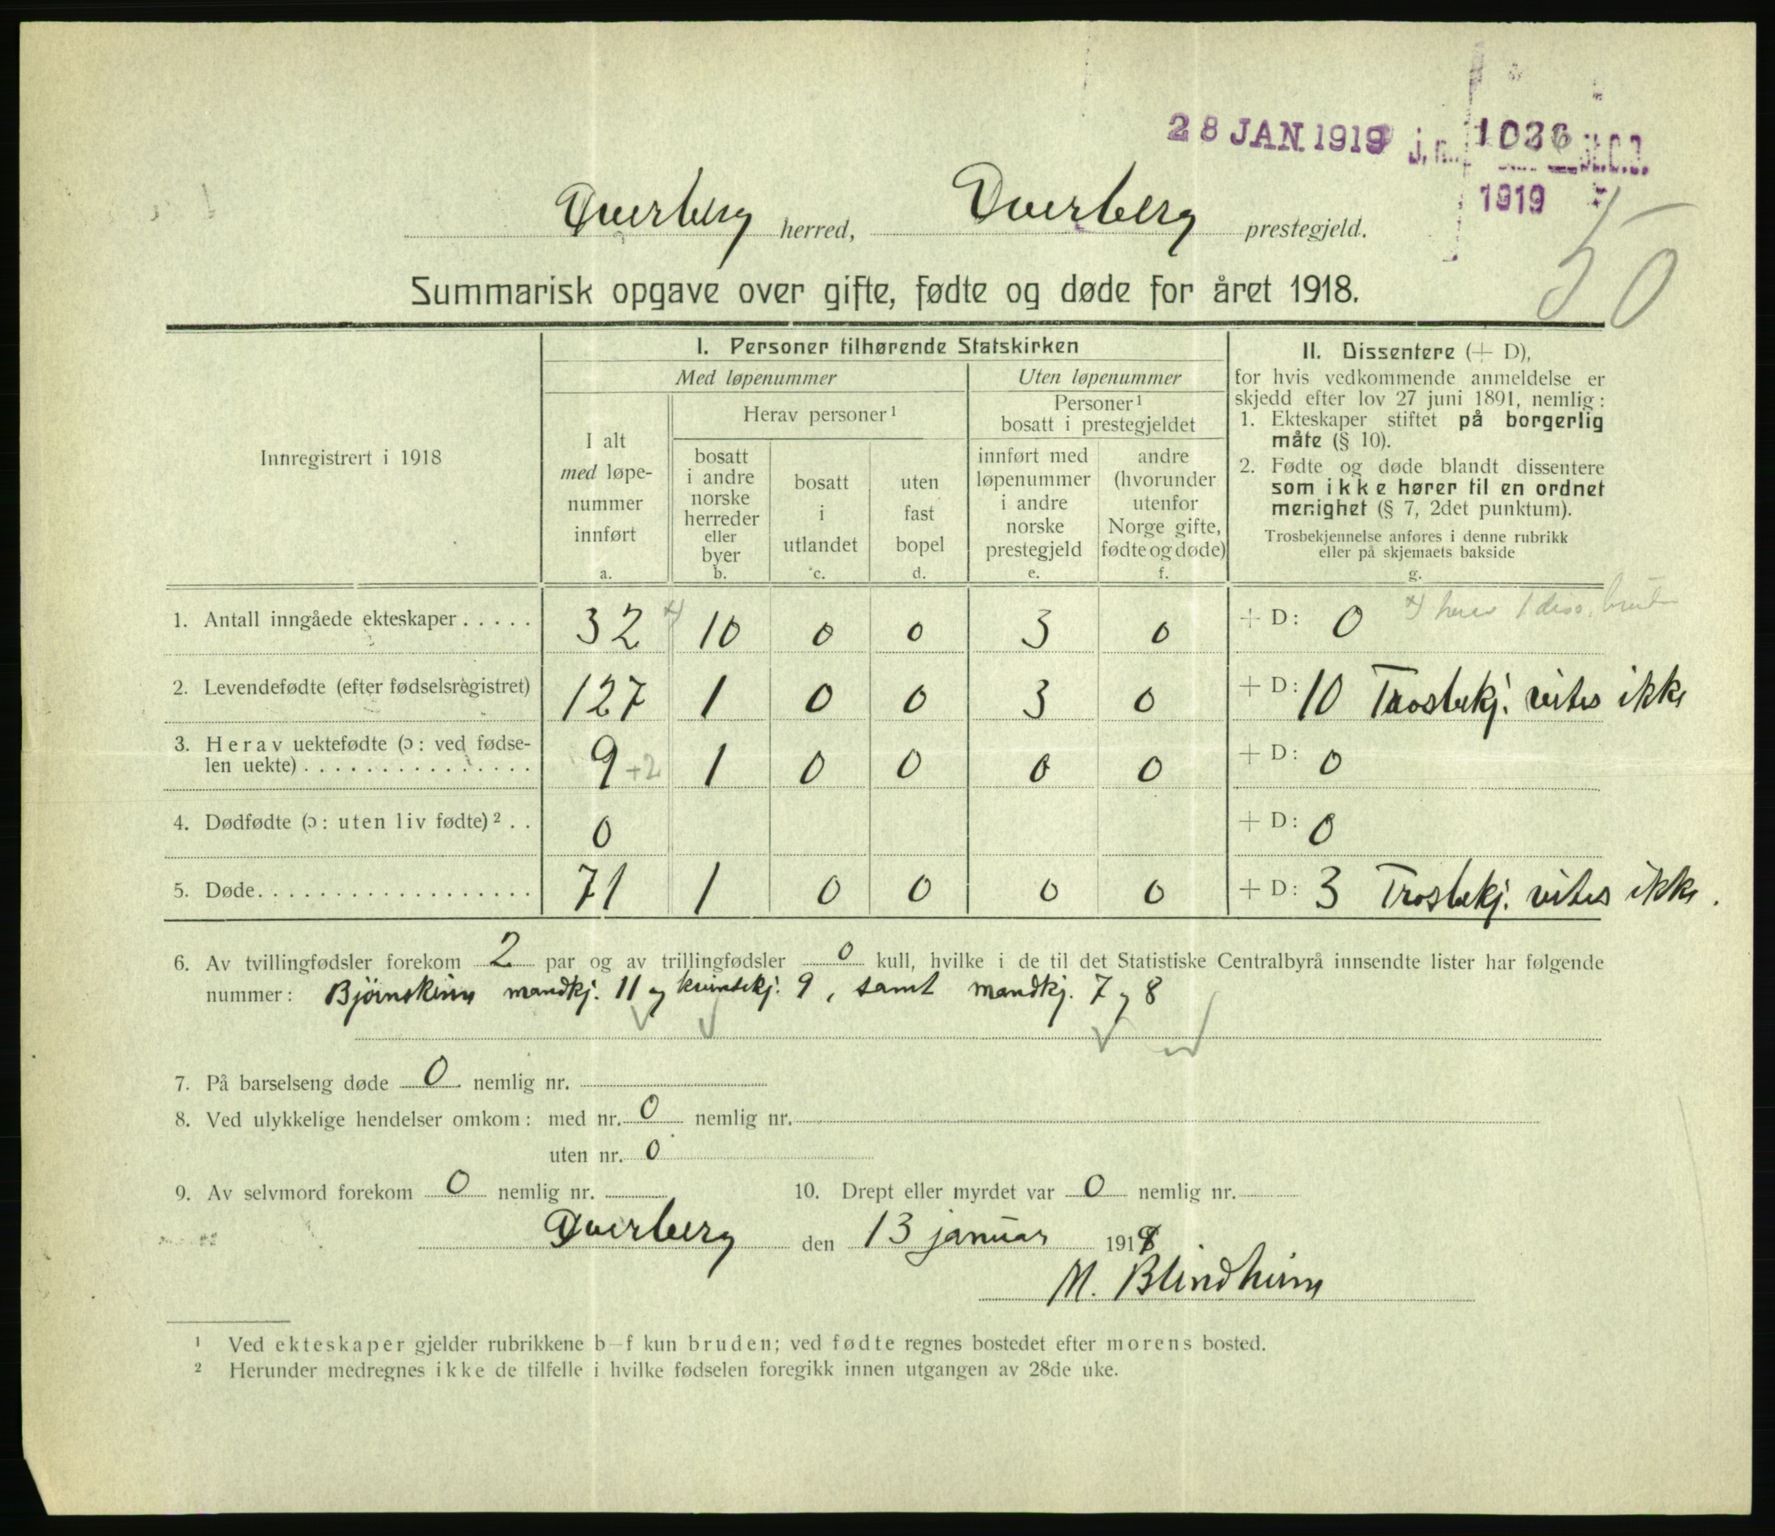 28 JAN. 1919 j. n. 1036 St.C.B.
1919
50
Dverberg herred, Dverberg prestegjeld.
Summarisk opgave over gifte, fødte og døde for året 1918.
Innregistrert i 1918
I. Personer tilhørende Statskirken
Med løpenummer
Uten løpenummer
I alt
med løpe-
nummer
innført
a.
Herav personer ¹
bosatt
i andre
norske
herreder
eller
byer
b.
bosatt
i
utlandet
c.
uten
fast
bopel
d.
Personer ¹
bosatt i prestegjeldet
innført med
løpenummer
i andre
norske
prestegjeld
e.
andre
(hvorunder
utenfor
Norge gifte,
fødte og døde)
f.
II. Dissentere (+ D),
for hvis vedkommende anmeldelse er
skjedd efter lov 27 juni 1891, nemlig:
1. Ekteskaper stiftet på borgerlig
måte (§ 10).
2. Fødte og døde blandt dissentere
som ikke hører til en ordnet
menighet (§ 7, 2det punktum).
Trosbekjennelse anføres i denne rubrikk
eller på skjemaets bakside
g.
1. Antall inngåede ekteskaper . . . . . 32 x) 10 0 0 3 0 + D: 0 x) herav 1 diss.
2. Levendefødte (efter fødselsregistret) 127 1 0 0 3 0 + D: 10 Trosbekj. vites ikke
3. Herav uektefødte (ɔ: ved fødse-
len uekte) . . . . . . . . . . . . . . . 9 +2 1 0 0 0 0 + D: 0
4. Dødfødte (ɔ: uten liv fødte) ² . . 0 + D: 0
5. Døde. . . . . . . . . . . . . . . . . . 71 1 0 0 0 0 + D: 3 Trosbekj. vites ikke.
6. Av tvillingfødsler forekom 2 par og av trillingfødsler 0 kull, hvilke i de til det Statistiske Centralbyrå innsendte lister har følgende
nummer: Bjørnskinn mandkj. 11 og kvindekj. 9, samt mandkj. 7 og 8
7. På barselseng døde 0 nemlig nr.
8. Ved ulykkelige hendelser omkom: med nr. 0 nemlig nr.
uten nr. 0
9. Av selvmord forekom 0 nemlig nr. 10. Drept eller myrdet var 0 nemlig nr.
Dverberg den 13 januar 1919
M. Blindheim
¹ Ved ekteskaper gjelder rubrikkene b–f kun bruden; ved fødte regnes bostedet efter morens bosted.
² Herunder medregnes ikke de tilfelle i hvilke fødselen foregikk innen utgangen av 28de uke.